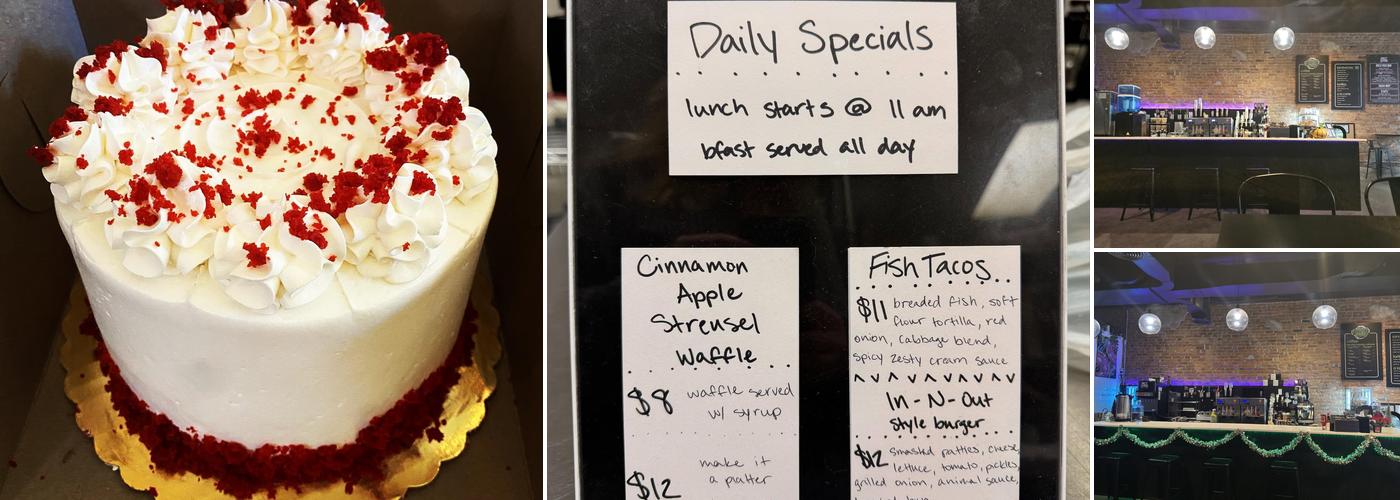 Daily Specials
lunch starts @ 11 am
bfast served all day
Cinnamon
Apple
Streusel
Waffle
$8 waffle served
w/ syrup
make it
a platter
$12
Fish Tacos
$11 breaded fish, soft
flour tortilla, red
onion, cabbage blend,
spicy zesty cream sauce
In-N-Out
style burger
$12 smashed patties, cheese,
lettuce, tomato, pickles,
grilled onion, animal sauce,